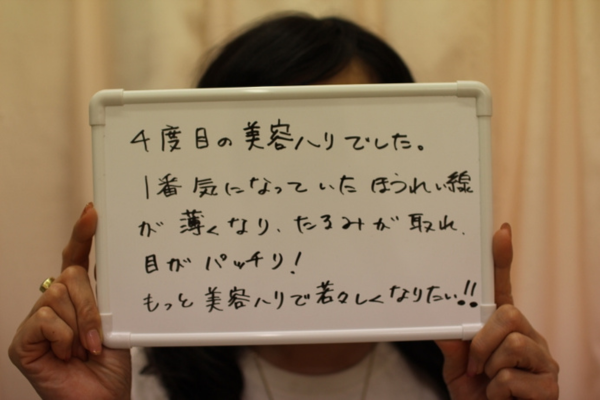 4度目の美容ハリでした。
1番気になっていたほうれい線
が薄くなり、たるみが取れ、
目がパッチリ!
もっと美容ハリで若々しくなりたい!!